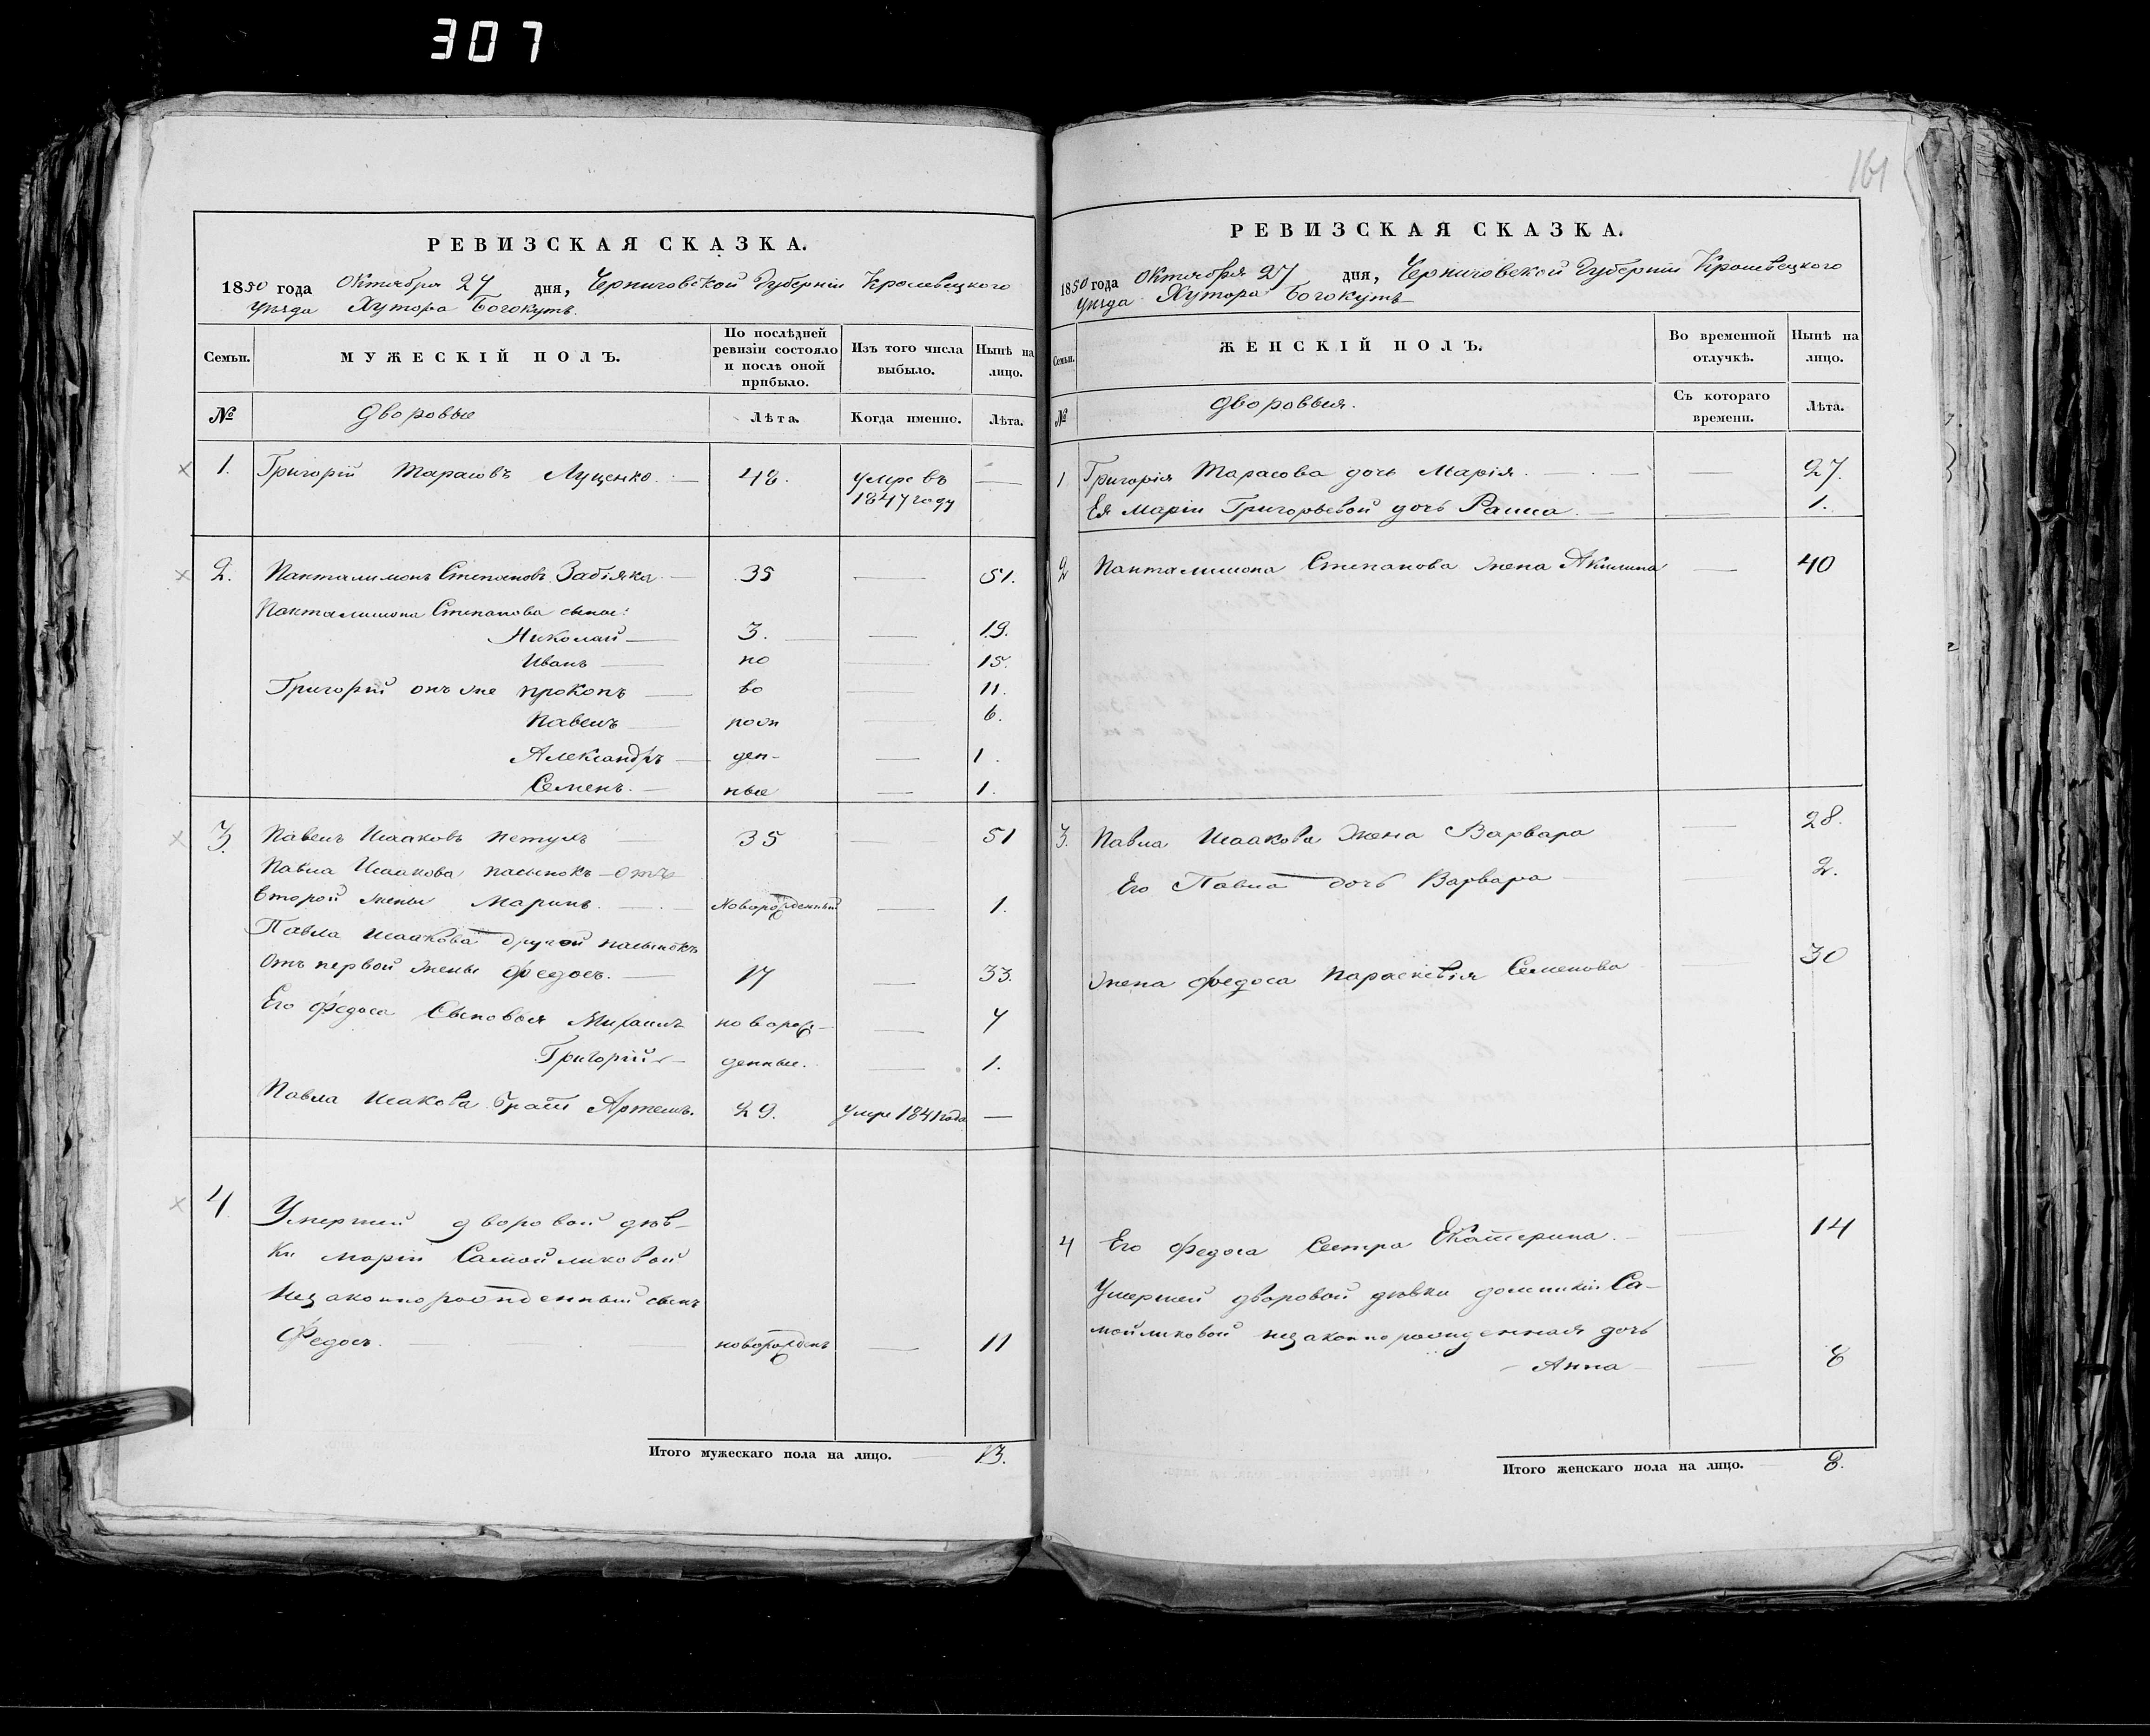 307
161
РЕВИЗСКАЯ СКАЗКА.
1850 года Октября 27 дня, Черниговской Губерніи Кролевецкого
уѣзда Хутора Богокутъ.
Семьи.
МУЖЕСКІЙ ПОЛЪ.
По послѣдней ревизіи состояло и послѣ оной прибыло.
Изъ того числа выбыло.
Нынѣ на лицо.
№ Дворовые Лѣта. Когда именно. Лѣта.
1. Григорій Тарасовъ Луценко. 48. умре въ —
1847 году
2. Панталимонъ Степановъ Забіяка 35 — 51.
Панталимона Степанова сыны:
Николай — 3. — 19.
Иванъ — но — 15.
Григорій онъ же прокопъ — во — 11.
Павелъ рож — 6.
Александръ — ден- — 1.
Семенъ. — ные — 1.
3. Павелъ Исааковъ Петухъ — 35 — 51
Павла Исаакова пасынокъ – отъ
второй жены Маринъ. — Новорожденный — 1.
Павла Исаакова другой пасынокъ
отъ первой жены Федосъ. — 17 — 33.
Его Федоса Сыновья Михаилъ новорож- — 7
Григорій — денные. — 1.
Павла Исакова братъ Артемъ. 29. умре 1841 года —
4 Умершей дворовой дѣв-
ки Маріи Самойликовой
Незаконнорожденный сынъ
Федосъ. — новорожденъ — 11
Итого мужескаго пола на лицо. 13.
РЕВИЗСКАЯ СКАЗКА.
1850 года Октября 27 дня, Черниговской Губерніи Кролевецкого
уѣзда Хутора Богокутъ
Семьи.
ЖЕНСКІЙ ПОЛЪ.
Во временной отлучкѣ.
Нынѣ на лицо.
№ Дворовыя. Съ котораго времени. Лѣта.
1 Григорія Тарасова дочь Марія. — — 27.
Ея Маріи Григорьевой дочь Раиса. — — 1.
2 Панталимона Степанова жена Акилина — 40
3. Павла Исаакова жена Варвара — 28.
Его Павла дочь Варвара — — 2.
Жена Федоса Параскевія Семенова — 30
4 Его Федоса Сестра Екатерина. — — 14
Умершей дворовой дѣвки Домникіи Са-
мойликовой незаконнорожденная дочь
— Анна — — 8
Итого женскаго пола на лицо. 8.